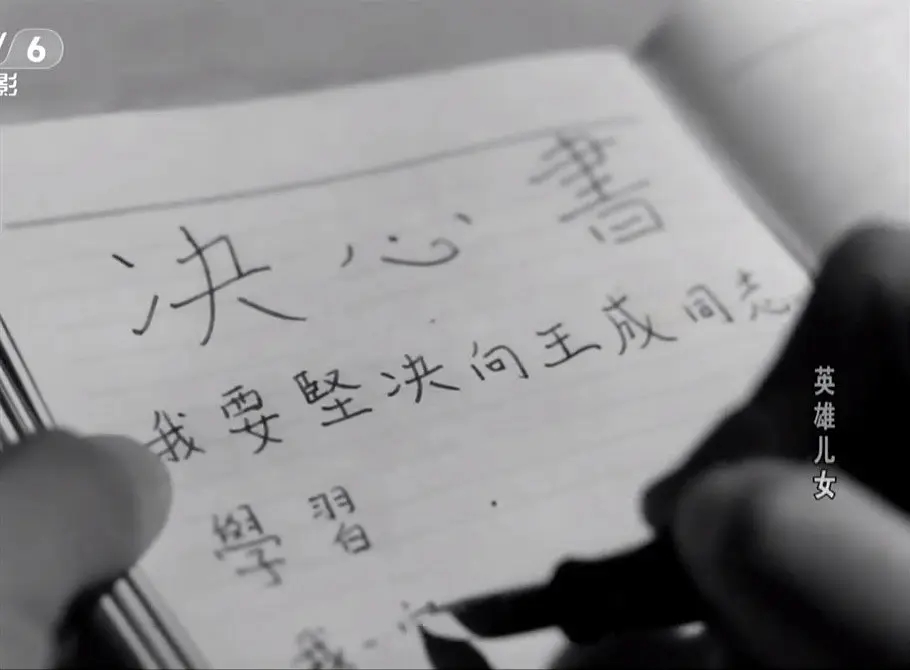 6
影
决心書
我要堅决向王成同志
學習
我一
英雄儿女